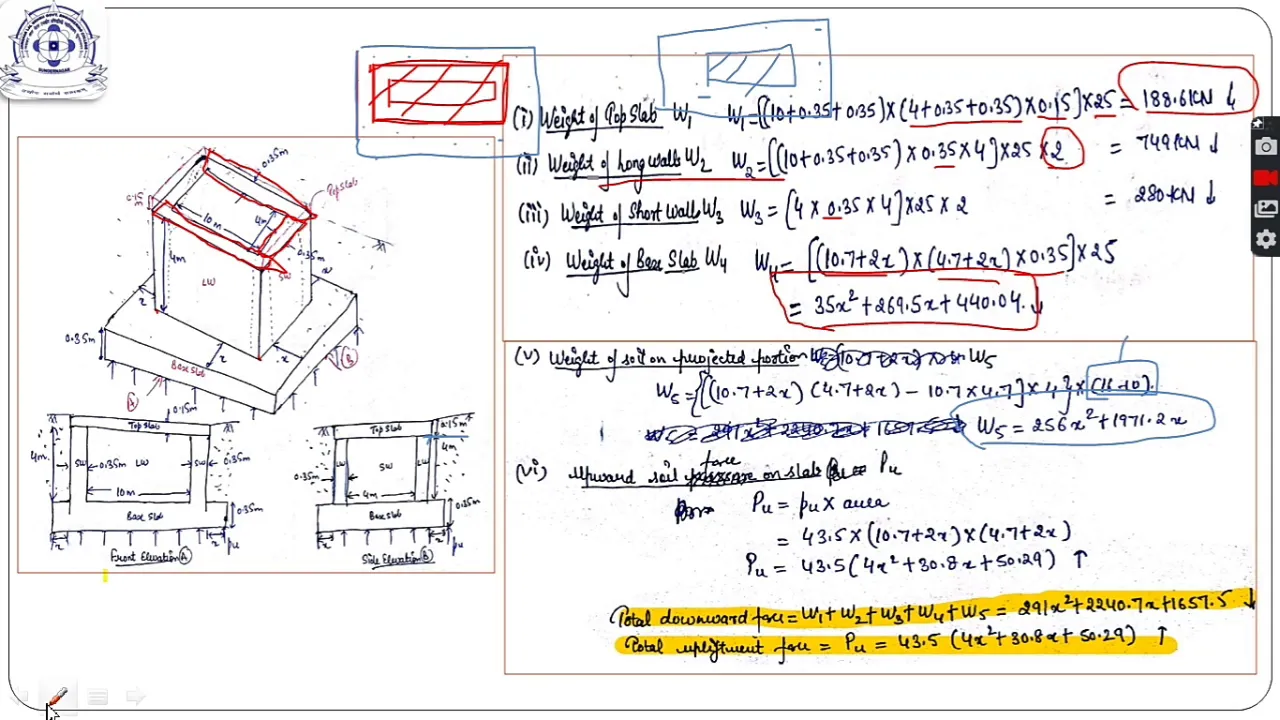 (i) Weight of Top Slab W₁ W₁=[(10+0.35+0.35)×(4+0.35+0.35)×0.15]×25 = 188.61KN ↓
(ii) Weight of Long walls W₂ W₂=[(10+0.35+0.35)×0.35×4]×25×2 = 749KN ↓
(iii) Weight of Short Walls W₃ W₃=[4×0.35×4]×25×2 = 280KN ↓
(iv) Weight of Base Slab W₄ W₄=[(10.7+2x)×(4.7+2x)×0.35]×25
= 35x²+269.5x+440.04 ↓
(v) Weight of soil on projected portion W₅
W₅={[(10.7+2x)(4.7+2x) - 10.7×4.7]×4}×
W₅=256x²+1971.2x
(vi) Upward soil force on slab = Pu
Pu = pu × area
= 43.5×(10.7+2x)×(4.7+2x)
Pu = 43.5(4x²+30.8x+50.29) ↑
Total downward force=W₁+W₂+W₃+W₄+W₅ = 291x²+2240.7x+1657.5 ↓
Total upliftment force = Pu = 43.5(4x²+30.8x+50.29) ↑
0.35m
Top Slab
0.15m
10m
4m
0.35m
SW
4m
LW
x
x
x
x
0.35m
Base Slab
A
B
0.15m
Top Slab
4m.
SW
0.35m
LW
SW
0.35m
10m
Base Slab
0.35m
x
x
pu
Front Elevation A
Top Slab
0.15m
LW
SW
LW
4m
0.35m
4m
Base Slab
0.35m
x
x
pu
Side Elevation B